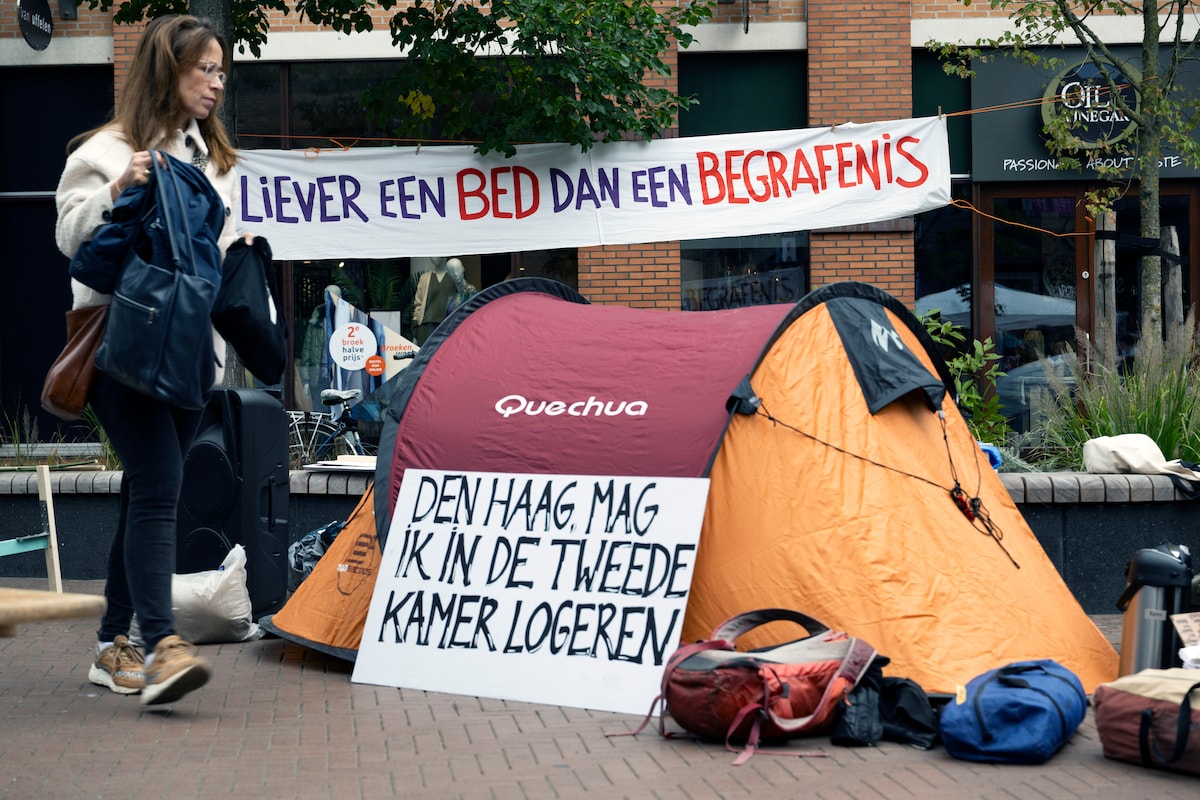 van uffelen
LIEVER EEN BED DAN EEN BEGRAFENIS
OIL
VINEGAR
PASSIONATE ABOUT TASTE
2e
broek
halve
prijs*
broeken
Quechua
DEN HAAG, MAG
IK IN DE TWEEDE
KAMER LOGEREN